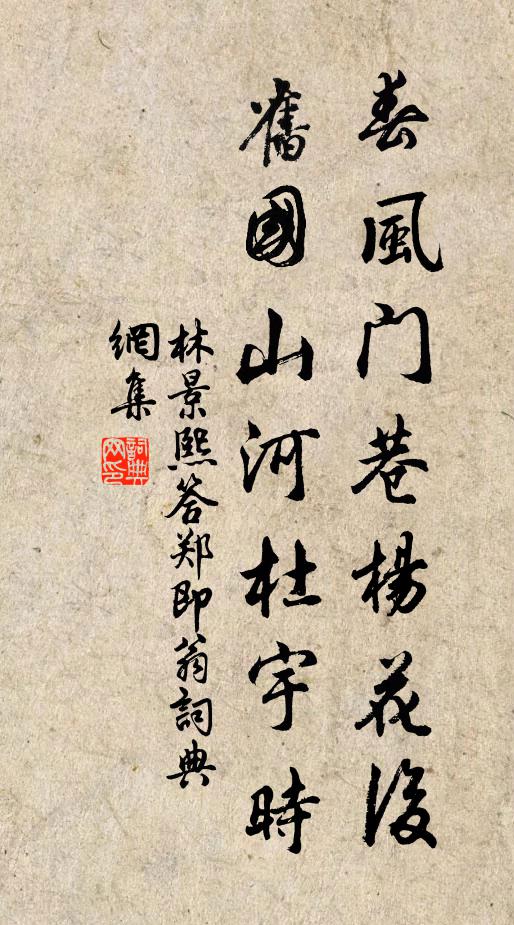 春風门巷楊花後
舊國山河杜宇時
林景熙答郑即翁詞典
網集
詞典
网印